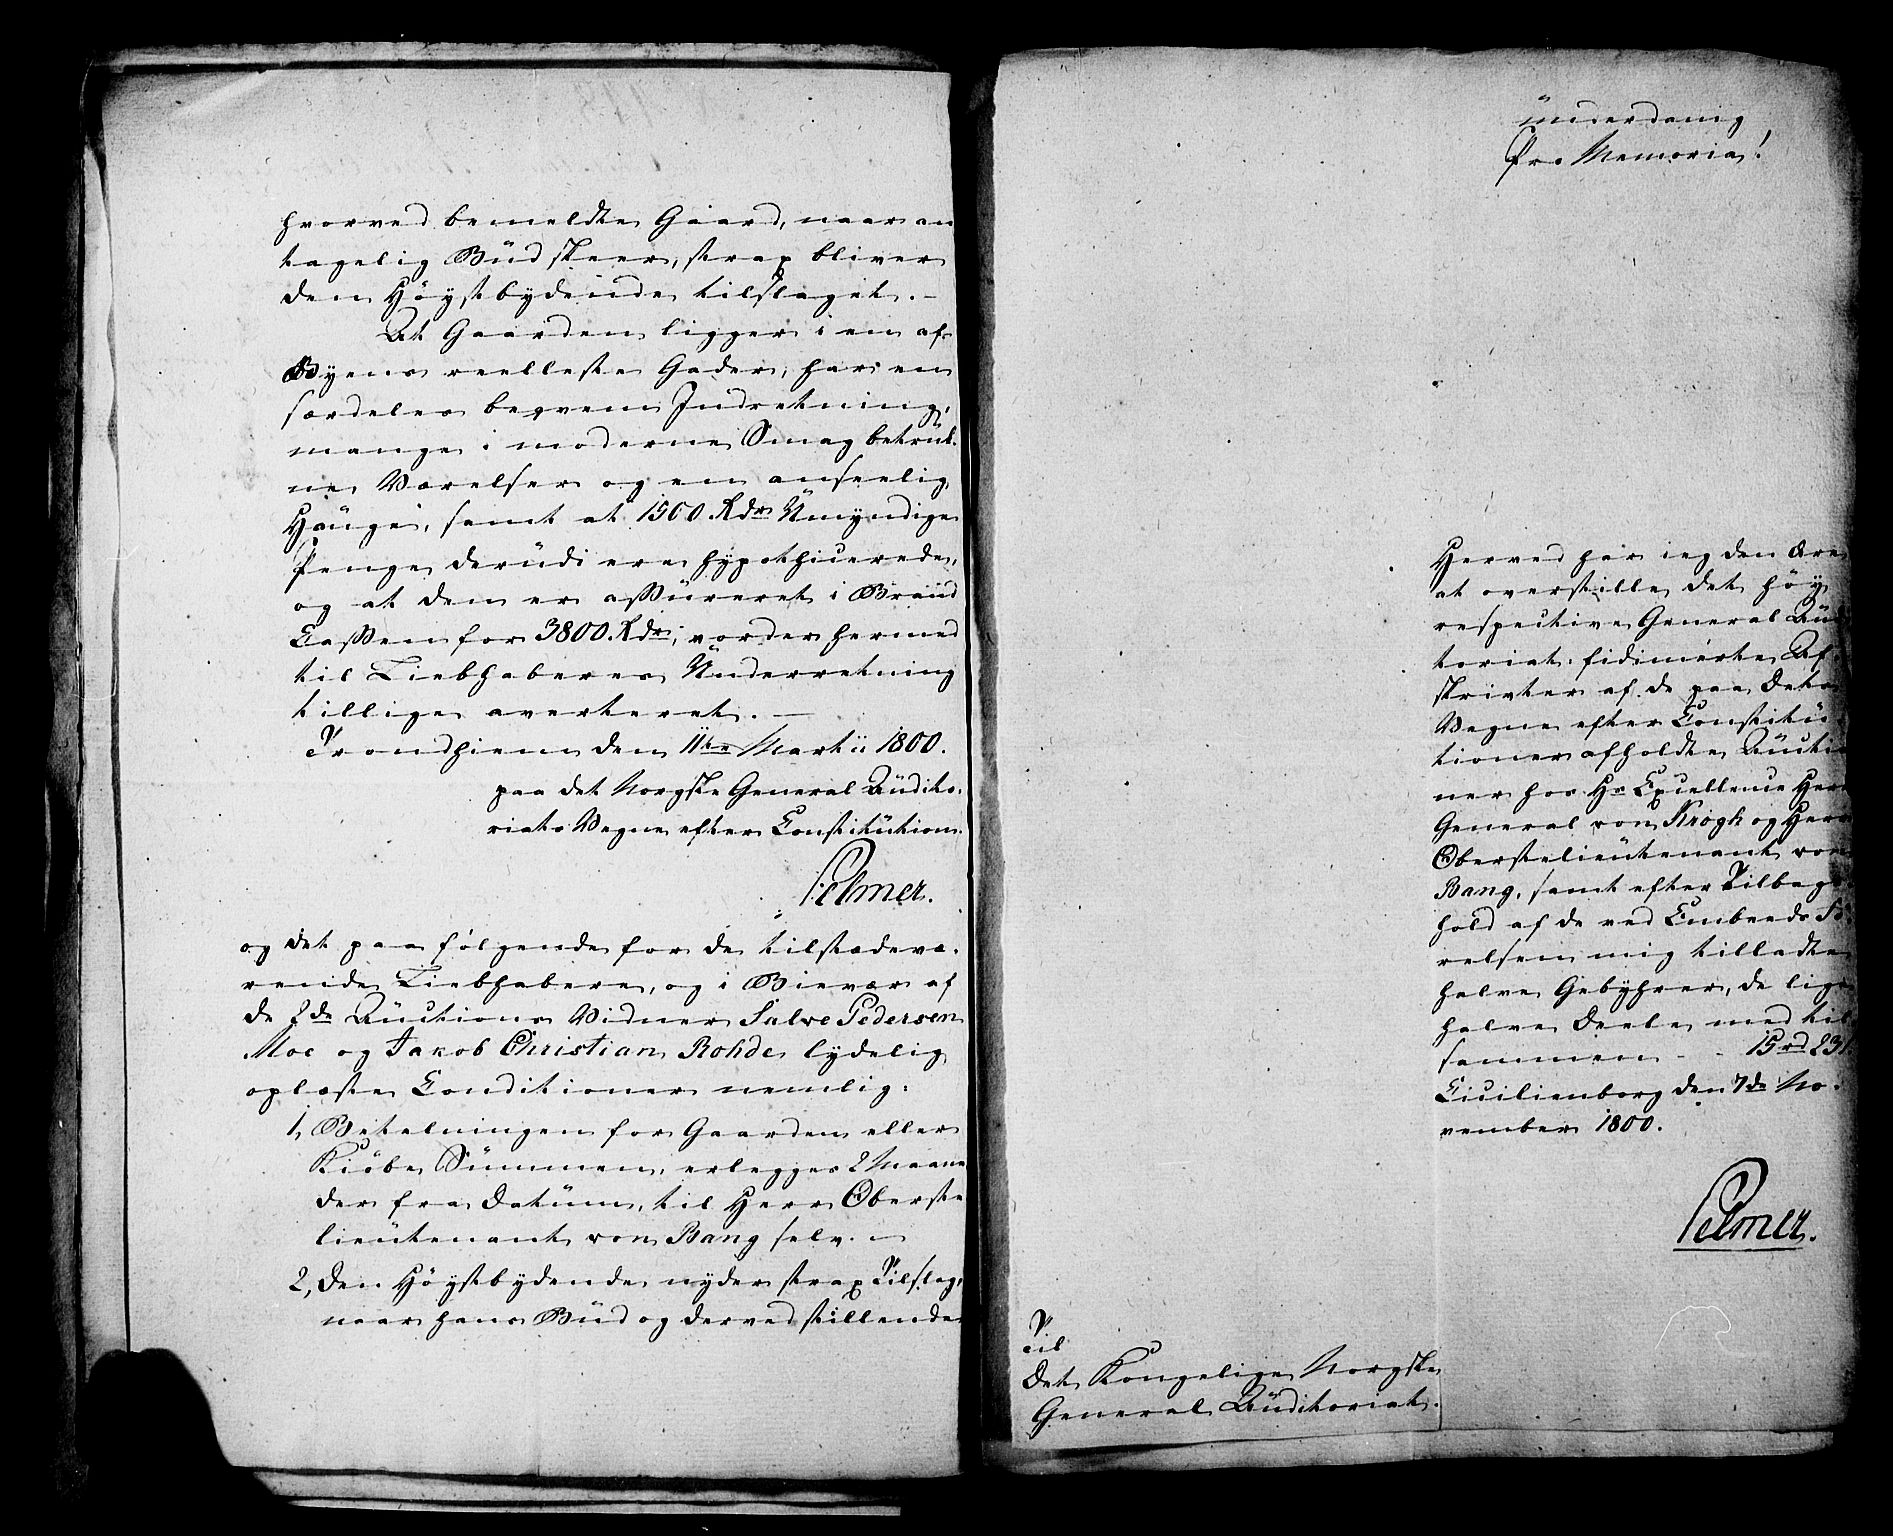 hvorved bemeldte Gaard, naar an
tagelig Büd skeer, strax bliver
den Höystbydende tilslaget. -
At Gaarden ligger i en af
Byens reelleste Gader, har en
særdeles beqvem Indretning,
mange i moderne Smag betrük-
ne Værelser og en anseelig
Hauge, samt at 1500 Rdr Umyndige
Penge derudi ere hypothicerede,
og at den er assüreret i Brand
Cassen for 3800. Rdr, vorder hermed
til Liebhaberes Underretning
tillige averteret. -
Trondhiem den 11te Martii 1800.
paa det Norgske General Audito-
riats Vegne efter Constitution.
Selmer.
og det paa følgende for de tilstædevæ-
rende Liebhabere, og i Bievær af
de 2de Auctions Vidner Salve Pedersen
Moe og Jakob Christian Rohde lydelig
oplæste Conditioner nemlig:
1, Betalningen for Gaarden eller
Kiøbe Summen, erlegges 2 Maane
der fra Datum, til Herr Oberste
lieutenant von Bang selv. -
2, Den Höystbydende nyder strax Tilslag,
naar hans Büd og derved stillende
Underdanig
Pro Memoria!
Herved har ieg den Ære
at overstille det höy
respective General Aüdi
toriat fidimerte Af-
skrivter af de paa Dets
Vegne efter Constitü-
tioner afholdte Aüctio
ner hos Hs Excellence Herr
General von Krogh og Herr
Oberstelieutenant von
Bang, samt efter Tilbage
hold af de ved Embeeds Fö-
relsen mig tilladte
halve Gebyhrer, de lige
halve Deele med til
sammen - - 15 rd 23 s.
Cicilienborg den 7de No-
vember 1800.
Selmer.
Til
Det Kongelige Norgske
General Auditoriat.